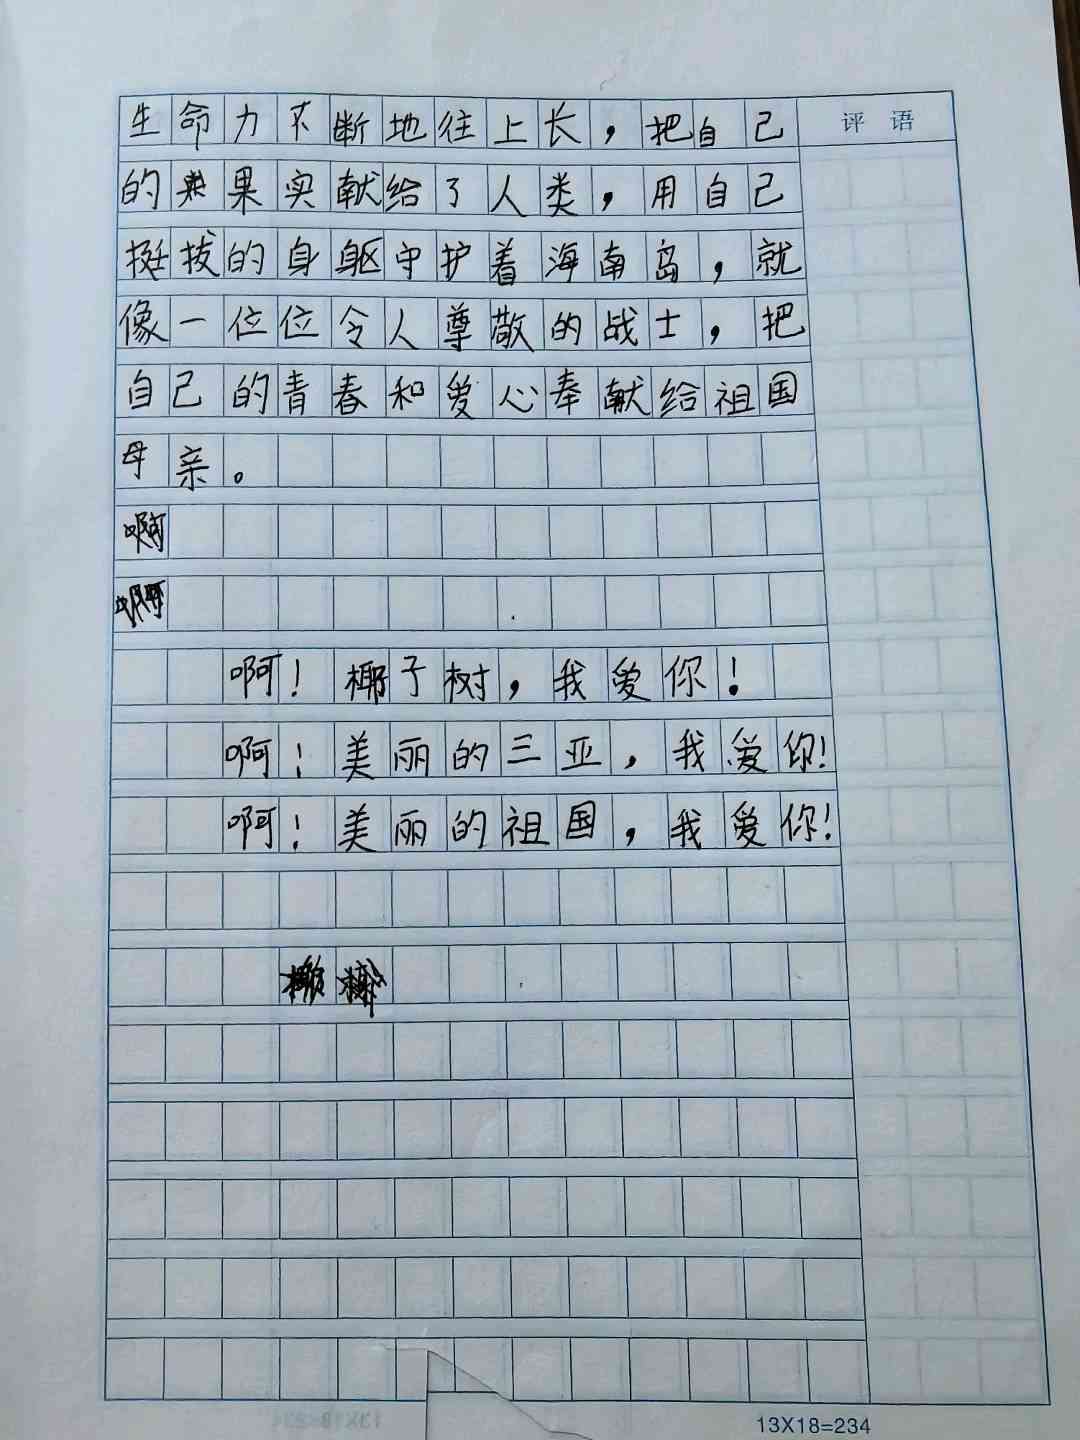 生命力不断地往上长，把自己
评语
的果实献给了人类，用自己
挺拔的身躯守护着海南岛，就
像一位位令人尊敬的战士，把
自己的青春和爱心奉献给祖国
母亲。
啊！椰子树，我爱你！
啊！美丽的三亚，我爱你！
啊！美丽的祖国，我爱你！
13X18=234